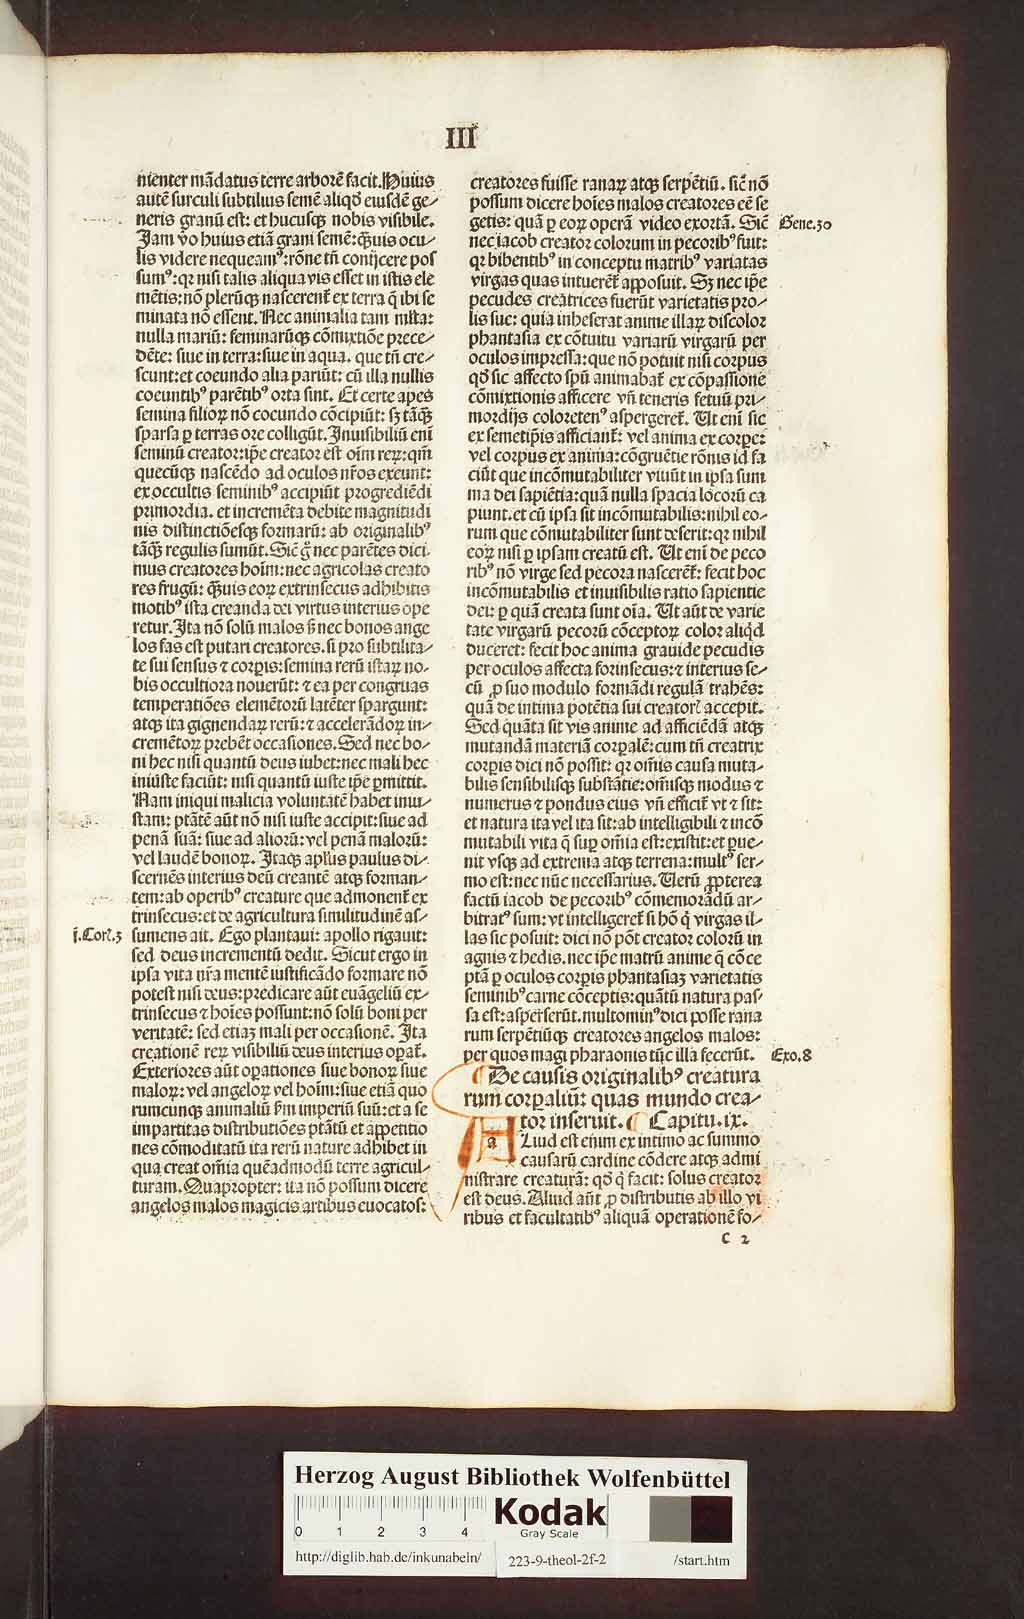 III
nienter mādatus terre arborē facit. Huius
autē surculi subtilius semē aliqđ eiusdē ge⸗
neris granū est: et hucusqꝫ nobis visibile.
Jam ṽo huius etiā grani semē: q̄uis ocu⸗
lis videre nequeamꝰ: rōne tn̄ conijcere pos
sumꝰ: qꝛ nisi talis aliqua vis esset in istis ele
mētis: nō plerūqꝫ nascerent᷑ ex terra q̄ ibi se
minata nō essent. Nec animalia tam mĺta:
nulla mariū: feminarūqꝫ cōmixtiōe prece⸗
dēte: siue in terra: siue in aqua. que tn̄ cre⸗
scunt: et coeundo alia pariūt: cū illa nullis
coeuntibꝰ parētibꝰ orta sint. Et certe apes
semina filioꝝ nō coeundo cōcipiūt: sꝫ tāqꝫ̄
sparsa ꝑ terras ore colligūt. Jnuisibiliū enī
seminū creator: ip̄e creator est oīm reꝝ: qm̄
quecūqꝫ nascēdo ad oculos nr̄os exeunt:
ex occultis seminibꝰ accipiūt progrediēdi
primordia. et incremēta debite magnitudi
nis distinctiōesqꝫ formarū: ab originalibꝰ
tāqꝫ̄ regulis sumūt. Sic̄ g̊ nec parētes dici
mus creatores hoīm: nec agricolas creato
res frugū: q̄uis eoꝝ extrinsecus adhibitis
motibꝰ ista creanda dei virtus interius ope
retur. Jta nō solū malos s̄ nec bonos ange
los fas est putari creatores. si pro subtilita⸗
te sui sensus ⁊ corꝑis: semina rerū istaꝝ no⸗
bis occultiora nouerūt: ⁊ ea per congruas
temperatiōes elementorū latēter spargunt:
atqꝫ ita gignendaꝝ rerū: ⁊ accelerādoꝝ in⸗
cremētoꝝ prebēt occasiones. Sed nec bo⸗
ni hec nisi quantū deus iubet: nec mali hec
iniuste faciūt: nisi quantū iuste ip̄e ꝑmittit.
Nam iniqui malicia voluntatē habet iniu⸗
stam: ptātē aūt nō nisi iuste accipit: siue ad
penā suā: siue ad aliorū: vel penā malorū:
vel laudē bonoꝝ. Jtaqꝫ apĺus paulus di⸗
scernēs interius deū creantē atqꝫ forman⸗
tem: ab operibꝰ creature que admonent᷑ ex
trinsecus: et de agricultura similitudinē as⸗
j.Cor.3 sumens ait. Ego plantaui: apollo rigauit:
sed deus incrementū dedit. Sicut ergo in
ipsa vita nr̄a mentē iustificādo formare nō
potest nisi deus: predicare aūt euāgeliū ex⸗
trinsecus ⁊ hoīes possunt: nō solū boni per
veritatē: sed etiaꝫ mali per occasionē. Jta
creationē reꝝ visibiliū deus interius oꝑat᷑.
Exteriores aūt oꝑationes siue bonoꝝ siue
maloꝝ: vel angeloꝝ vel hoīm: siue etiā quo
rumcunqꝫ animaliū s̄m imperiū suū: et a se
impartitas distributiōes ptātū et appetitio
nes cōmoditatū ita rerū nature adhibet in
qua creat om̄ia quēadmodū terre agricul⸗
turam. Quapropter: ita nō possum dicere
angelos malos magicis artibus euocatos:
creatores fuisse ranaꝝ atqꝫ serpētiū. sic̄ nō
possum dicere hoīes malos creatores eē se
getis: quā ꝑ eoꝝ operā video exortā. Sic̄ Gene.30
nec iacob creator colorum in pecoribꝰ fuit:
qꝛ bibentibꝰ in conceptu matribꝰ variatas
virgas quas intuerēt apposuit. Sꝫ nec ip̄e
pecudes creatrices fuerūt varietatis pro⸗
lis sue: quia inheserat anime illaꝝ discolor
phantasia ex cōtuitu variarū virgarū per
oculos impressa: que nō potuit nisi corpus
qđ sic affecto spū animabat᷑ ex cōpassione
cōmixtionis afficere vn̄ teneris fetuū pri⸗
mordijs coloretenꝰ aspergeret᷑. Ut enī sic
ex semetip̄is afficiant᷑: vel anima ex corꝑe:
vel corpus ex anima: cōgruētie rōnis id fa
ciūt que incōmutabiliter viuūt in ipsa sum
ma dei sapiētia: quā nulla spacia locorū ca
piunt. et cū ipsa sit incōmutabilis: nihil eo⸗
rum que cōmutabiliter sunt deserit: qꝛ nihil
eoꝝ nisi ꝑ ipsam creatū est. Ut enī de peco
ribꝰ nō virge sed pecora nascerēt: fecit hoc
incōmutabilis et inuisibilis ratio sapientie
dei: ꝑ quā creata sunt oīa. Ut aūt de varie
tate virgarū pecorū cōceptoꝝ color aliqđ
duceret: fecit hoc anima grauide pecudis
per oculos affecta forinsecus: ⁊ interius se⸗
cū ꝓ suo modulo formādi regulā trahēs:
quā de intima potētia sui creatoꝛ᷑ accepit.
Sed quāta sit vis anime ad afficiēdā atqꝫ
mutandā materiā corꝑalē: cum tn̄ creatrix
corꝑis dici nō possit: qꝛ om̄is causa muta⸗
bilis sensibilisqꝫ substātie: om̄isqꝫ modus ⁊
numerus ⁊ pondus eius vn̄ efficit᷑ vt ⁊ sit:
et natura ita vel ita sit: ab intelligibili ⁊ incō
mutabili vita q̄ suꝑ om̄ia est: existit: et ꝑue⸗
nit vsqꝫ ad extrema atqꝫ terrena: multꝰ ser⸗
mo est: nec nūc necessarius. Uerū ꝓpterea
factū iacob de pecoribꝰ cōmemorādū ar⸗
bitratꝰ sum: vt intelligeret᷑ si hō q̄ virgas il⸗
las sic posuit: dici nō pōt creator colorū in
agnis ⁊ hedis. nec ip̄e matrū anime q̄ cōce
ptā ꝑ oculos corꝑis phantasiaꝫ varietatis
seminibꝰ carne cōceptis: quātū natura pas⸗
sa est: asperserūt. multominꝰ dici posse rana
rum serpētiūqꝫ creatores angelos malos:
per quos magi pharaonis tūc illa fecerūt. Exo.8
¶ De causis originalibꝰ creatura
rum corꝑaliū: quas mundo crea⸗
tor inseruit. ¶ Capitu.ix.
a Liud est enim ex intimo ac summo
causarū cardine cōdere atqꝫ admi
nistrare creaturā: qđ q̄ facit: solus creator
est deus. Aliud aūt ꝓ distributis ab illo vi
ribus et facultatibꝰ aliquā operationē fo⸗
c 2
Herzog August Bibliothek Wolfenbüttel
0 1 2 3 4
Kodak
Gray Scale
http://diglib.hab.de/inkunabeln/ 223-9-theol-2f-2 /start.htm